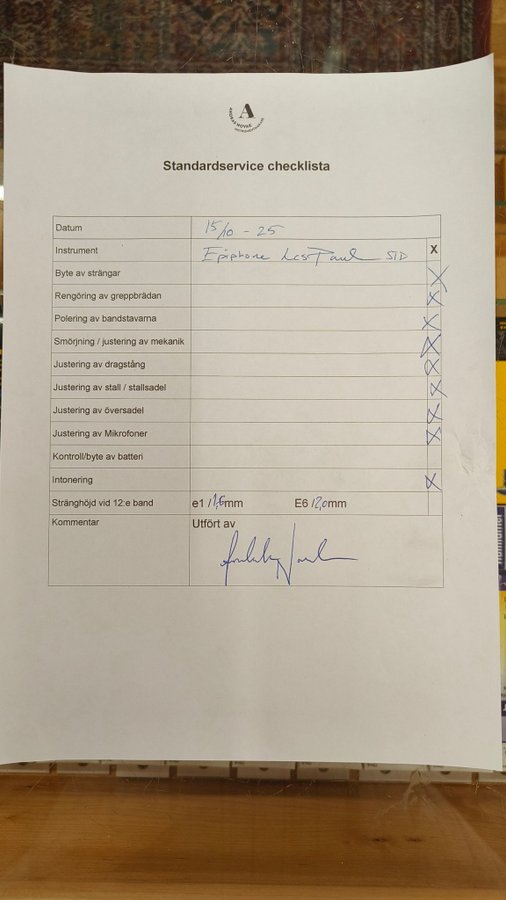 A
ANDRAS NOVAK
Standardservice checklista
Datum 15/10 - 25
Instrument Epiphone Les Paul STD X
Byte av strängar X
Rengöring av greppbrädan X
Polering av bandstavarna X
Smörjning / justering av mekanik X
Justering av dragstång X
Justering av stall / stallsadel X
Justering av översadel X
Justering av Mikrofoner X
Kontroll/byte av batteri
Intonering X
Stränghöjd vid 12:e band e1 /1,6mm E6 /2,0mm
Kommentar Utfört av